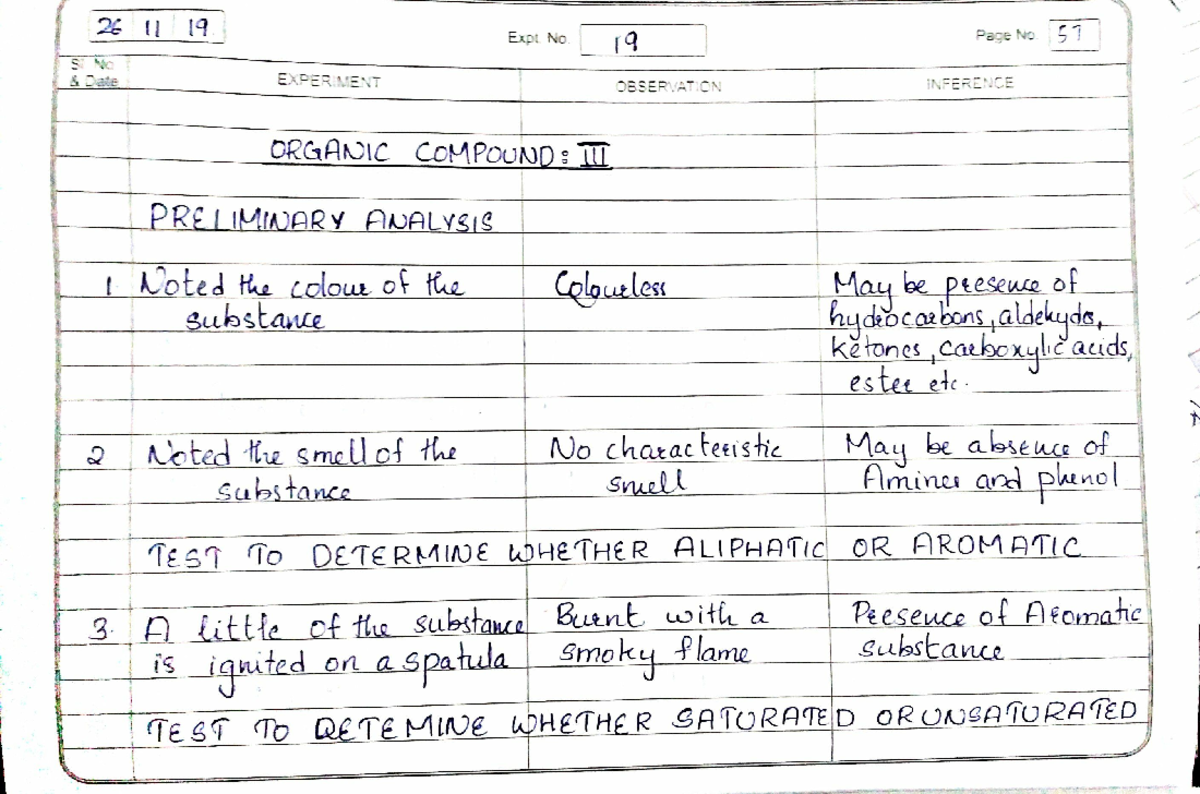 26 11 19
Expt. No. 19
Page No. 57
Sl. No. & Date
EXPERIMENT
OBSERVATION
INFERENCE
ORGANIC COMPOUND: III
PRELIMINARY ANALYSIS
1. Noted the colour of the
substance
Colourless
May be presence of
hydrocarbons, aldehydes,
ketones, carboxylic acids,
ester etc.
2 Noted the smell of the
substance
No characteristic
smell
May be absence of
Amines and phenol
TEST TO DETERMINE WHETHER ALIPHATIC OR AROMATIC
3. A little of the substance
is ignited on a spatula
Burnt with a
smoky flame
Presence of Aromatic
substance
TEST TO DETEMINE WHETHER SATURATED OR UNSATURATED